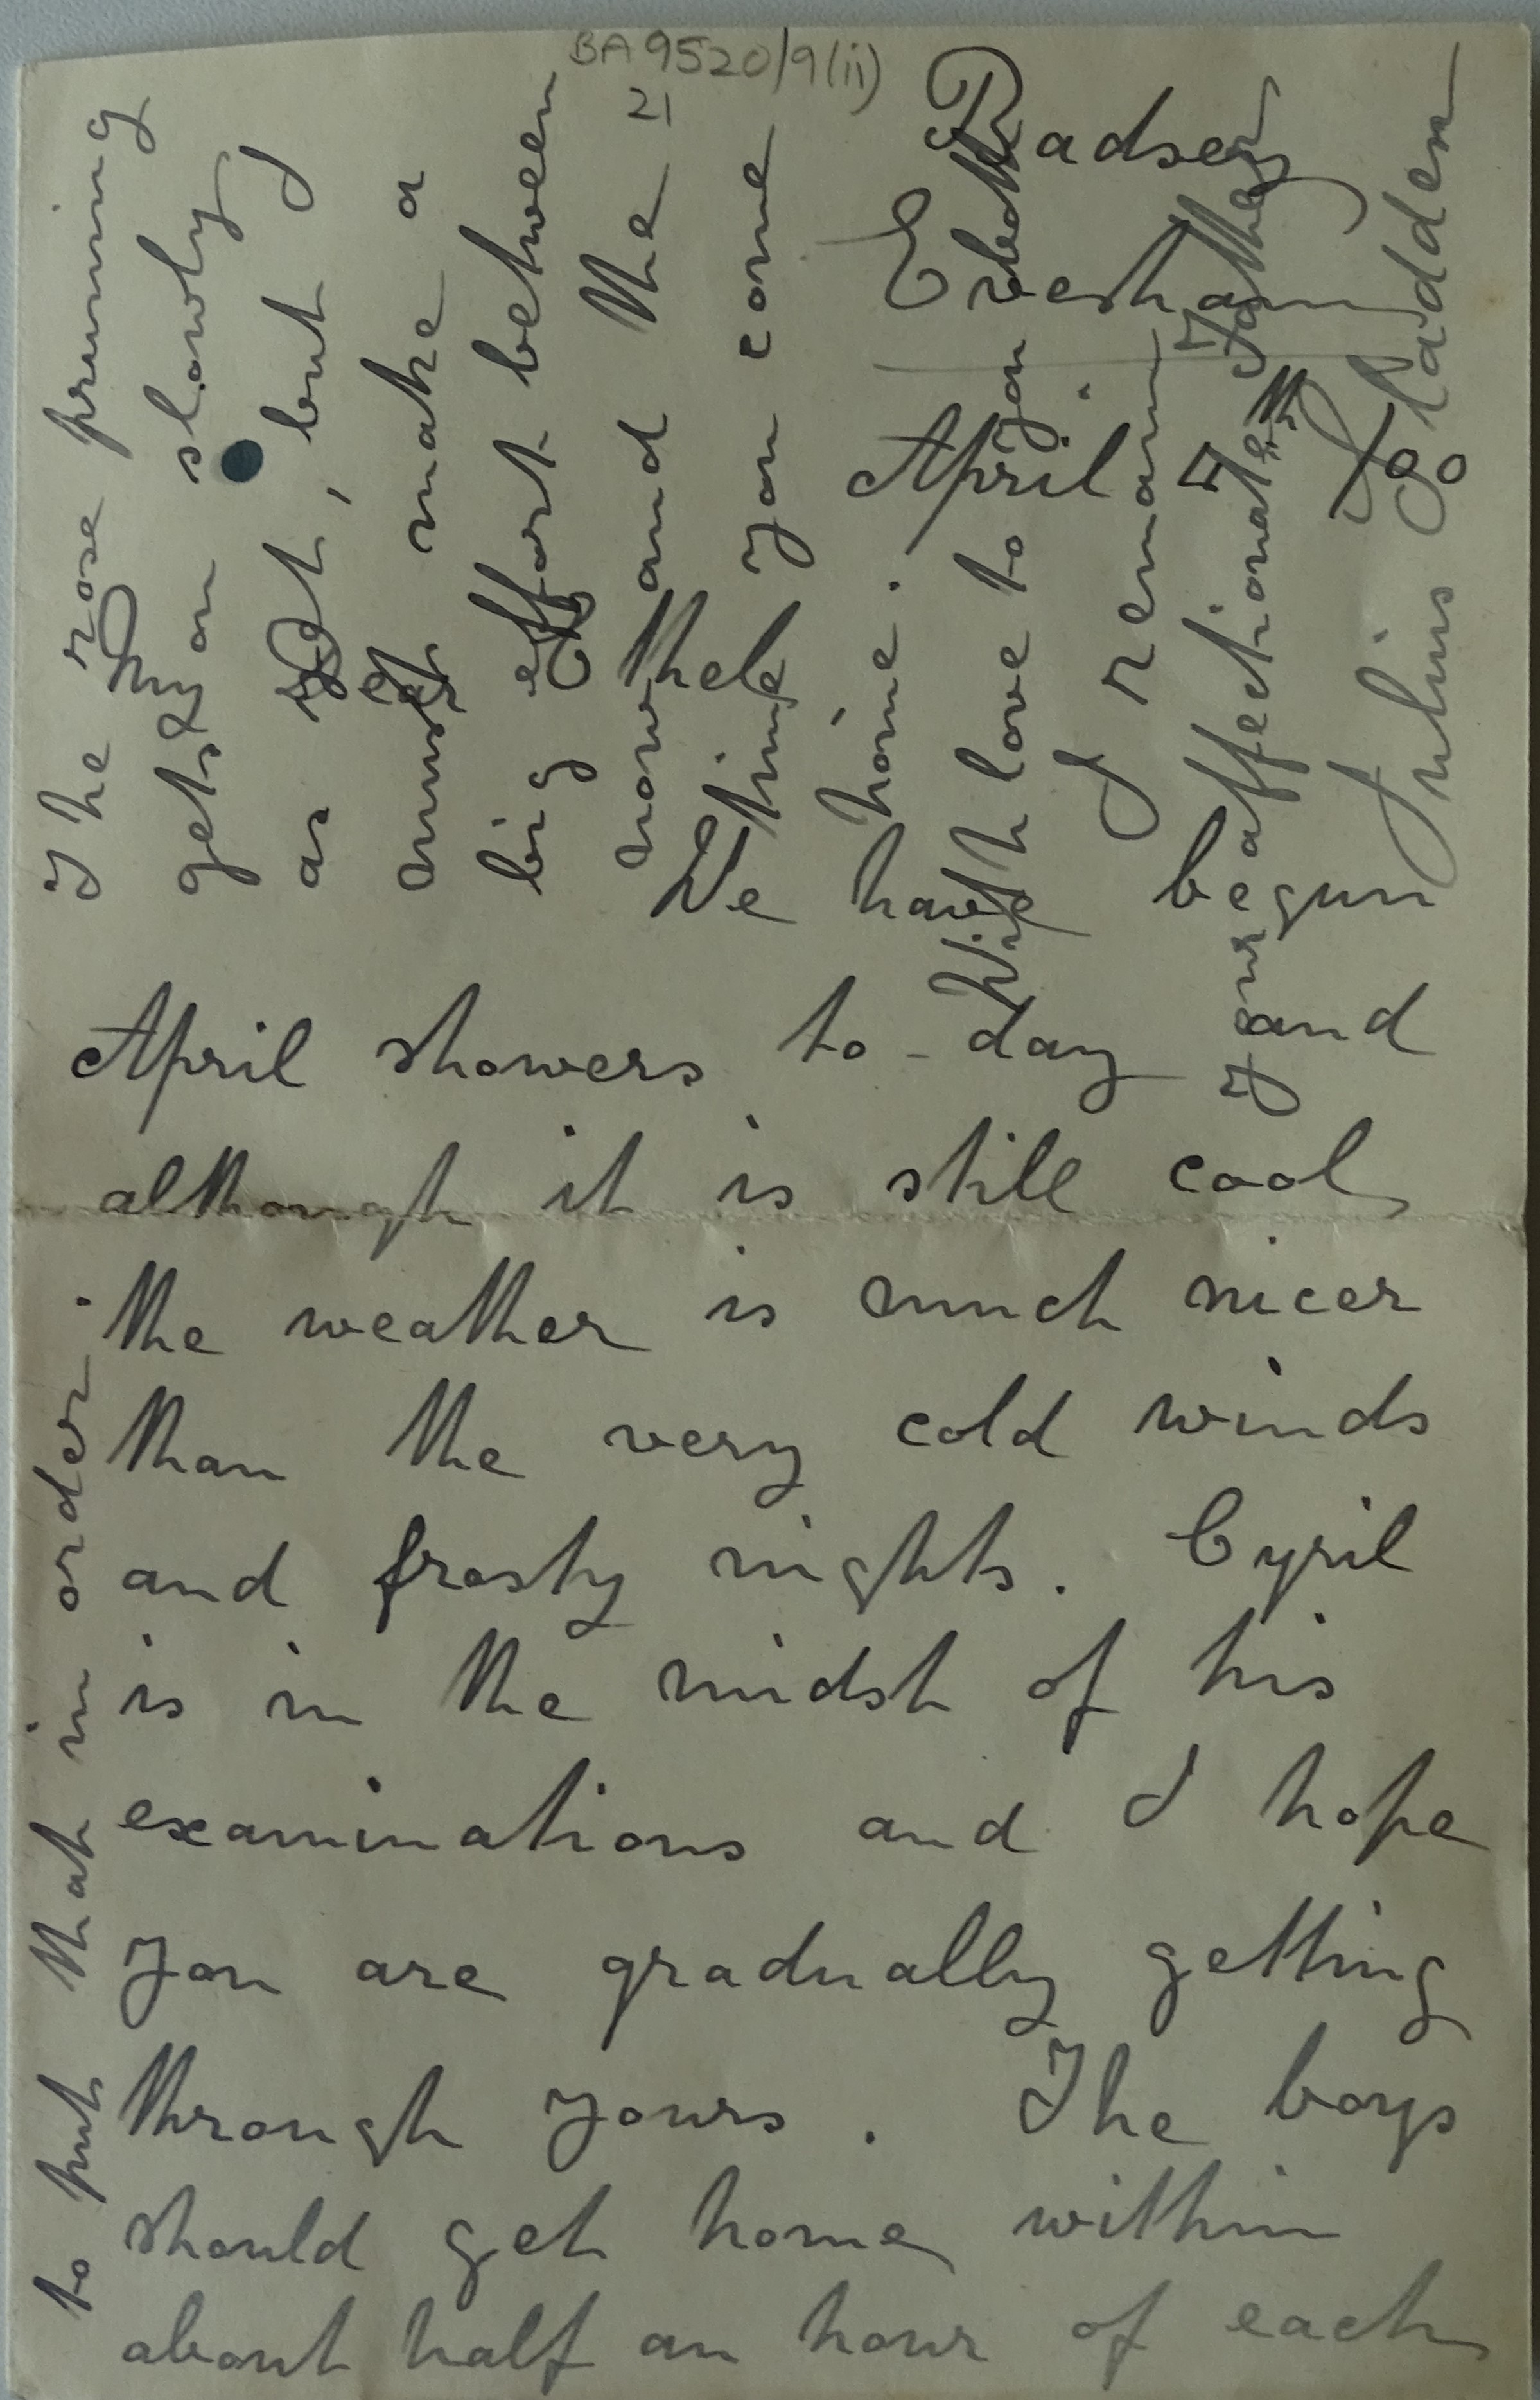 BA9520/9(ii)
21
Badsey
Evesham
April
00
My Dear Ethel
We have begun
April showers to-day and
although it is still cool
the weather is much nicer
than the very cold winds
and frosty nights. Cyril
is in the midst of his
examinations and I hope
you are gradually getting
through yours. The boys
should get home within
about half an hour of each
to put that in order.
The rose pruning
gets on slowly
as yet, but I
must make a
big effort between
now and the
time you come
home.
With love to you both
I remain
Your affectionate Father
Julius Sladden